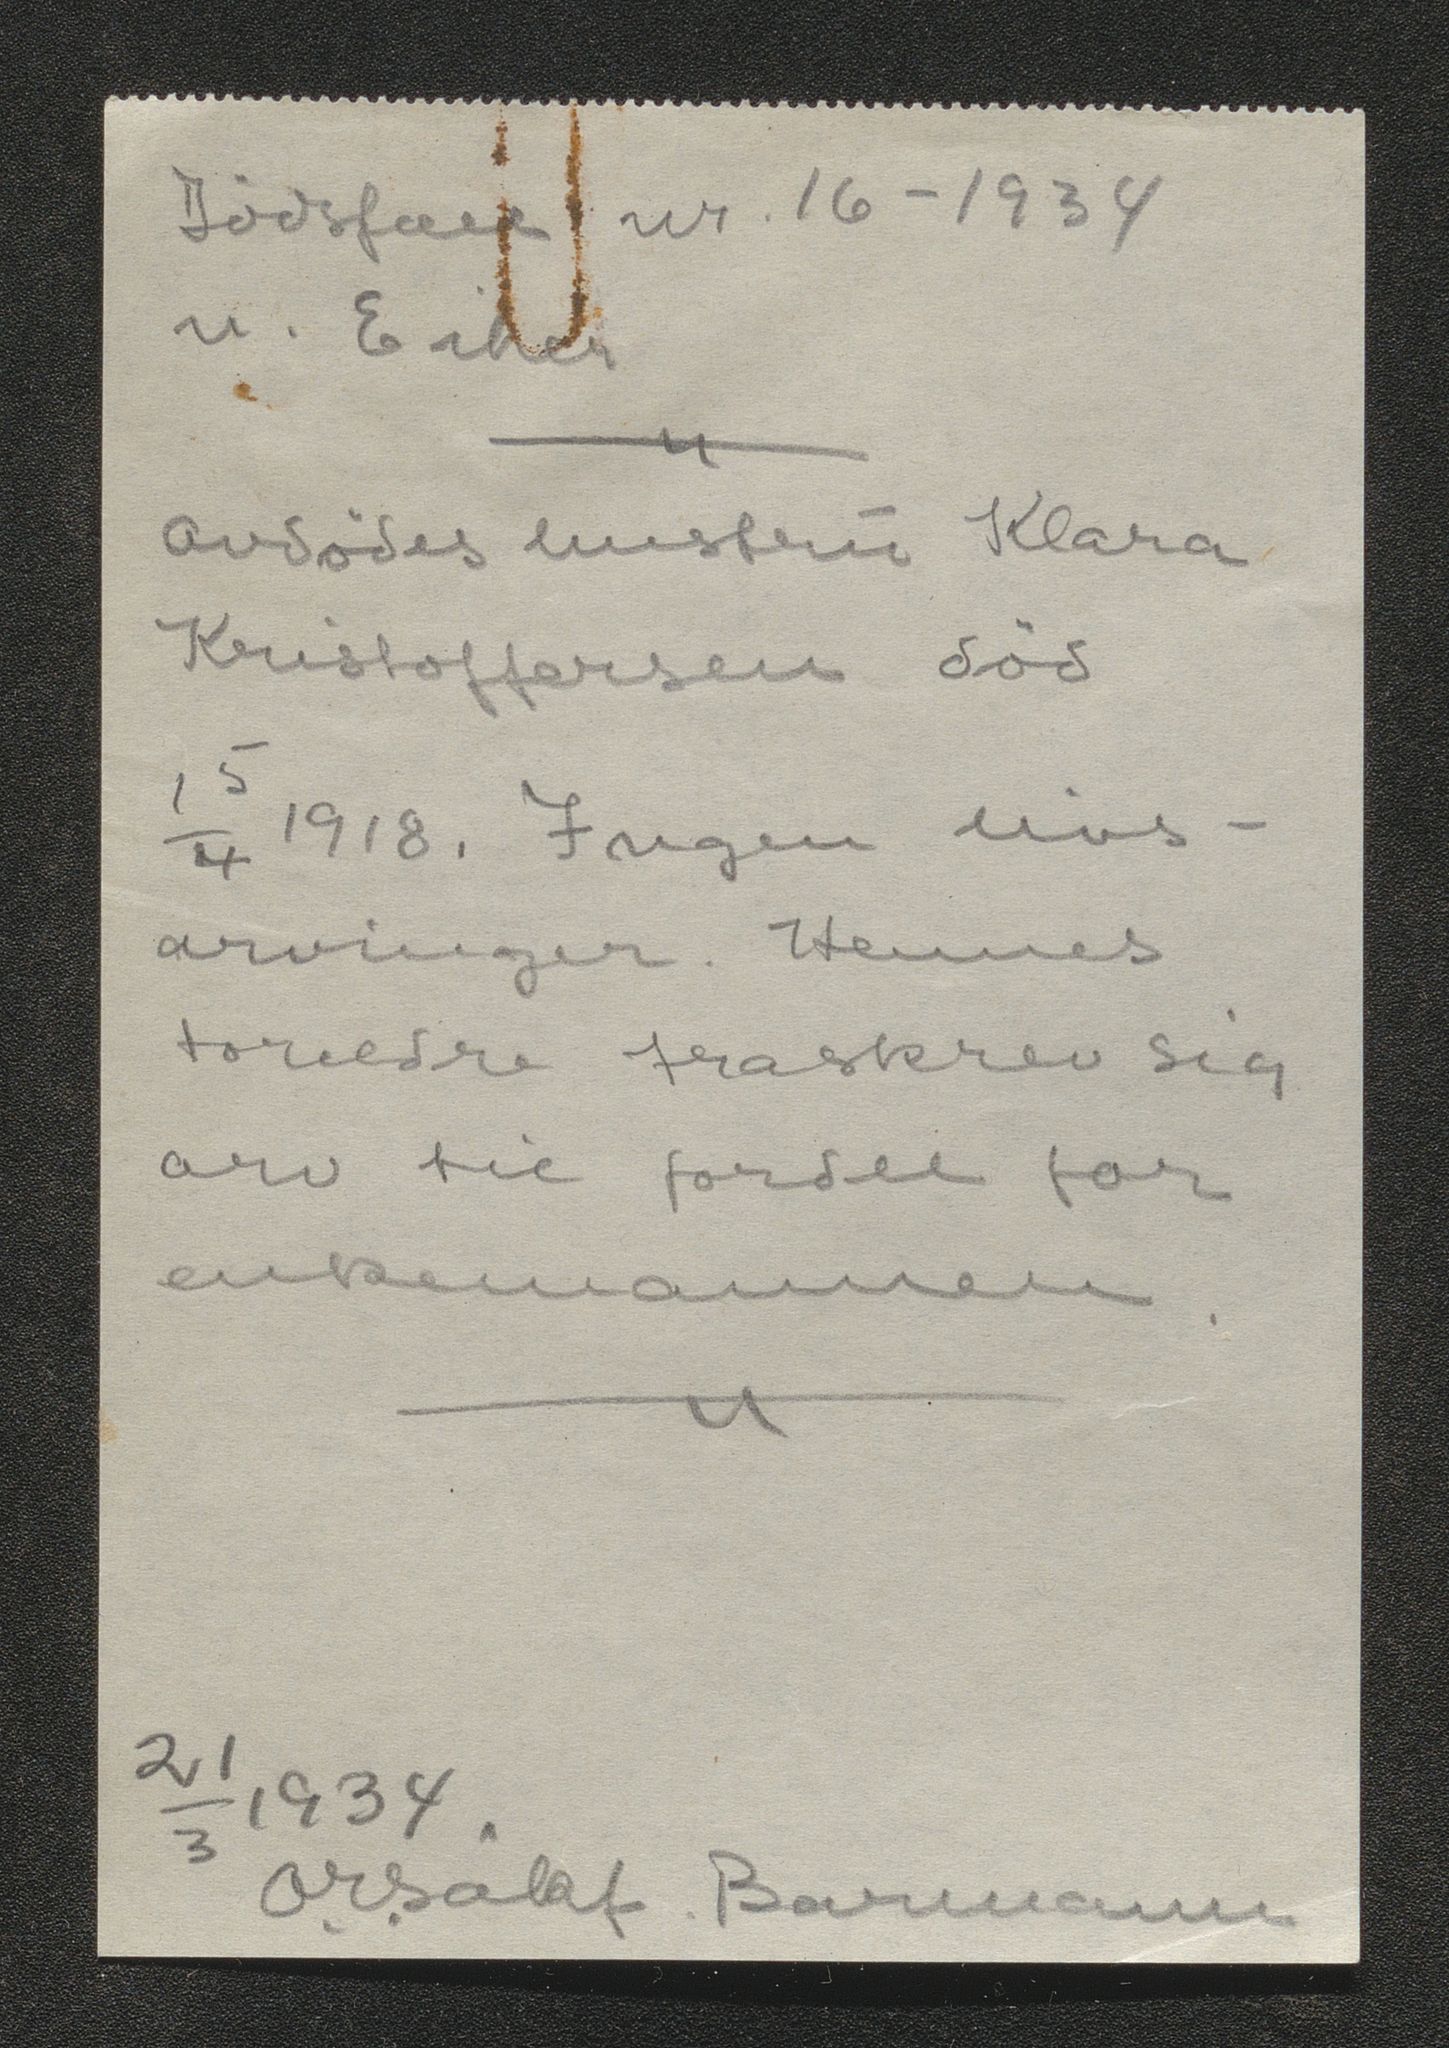 Dödsfall nr. 16-1934
n. Eiker
"
avdödes hustru Klara
Kristoffersen död
15/4 1918. Ingen livs-
arvinger. Hennes
foreldre fraskrev sig
arv til fordel for
enkemannen.
"
21/3 1934.
Barmann